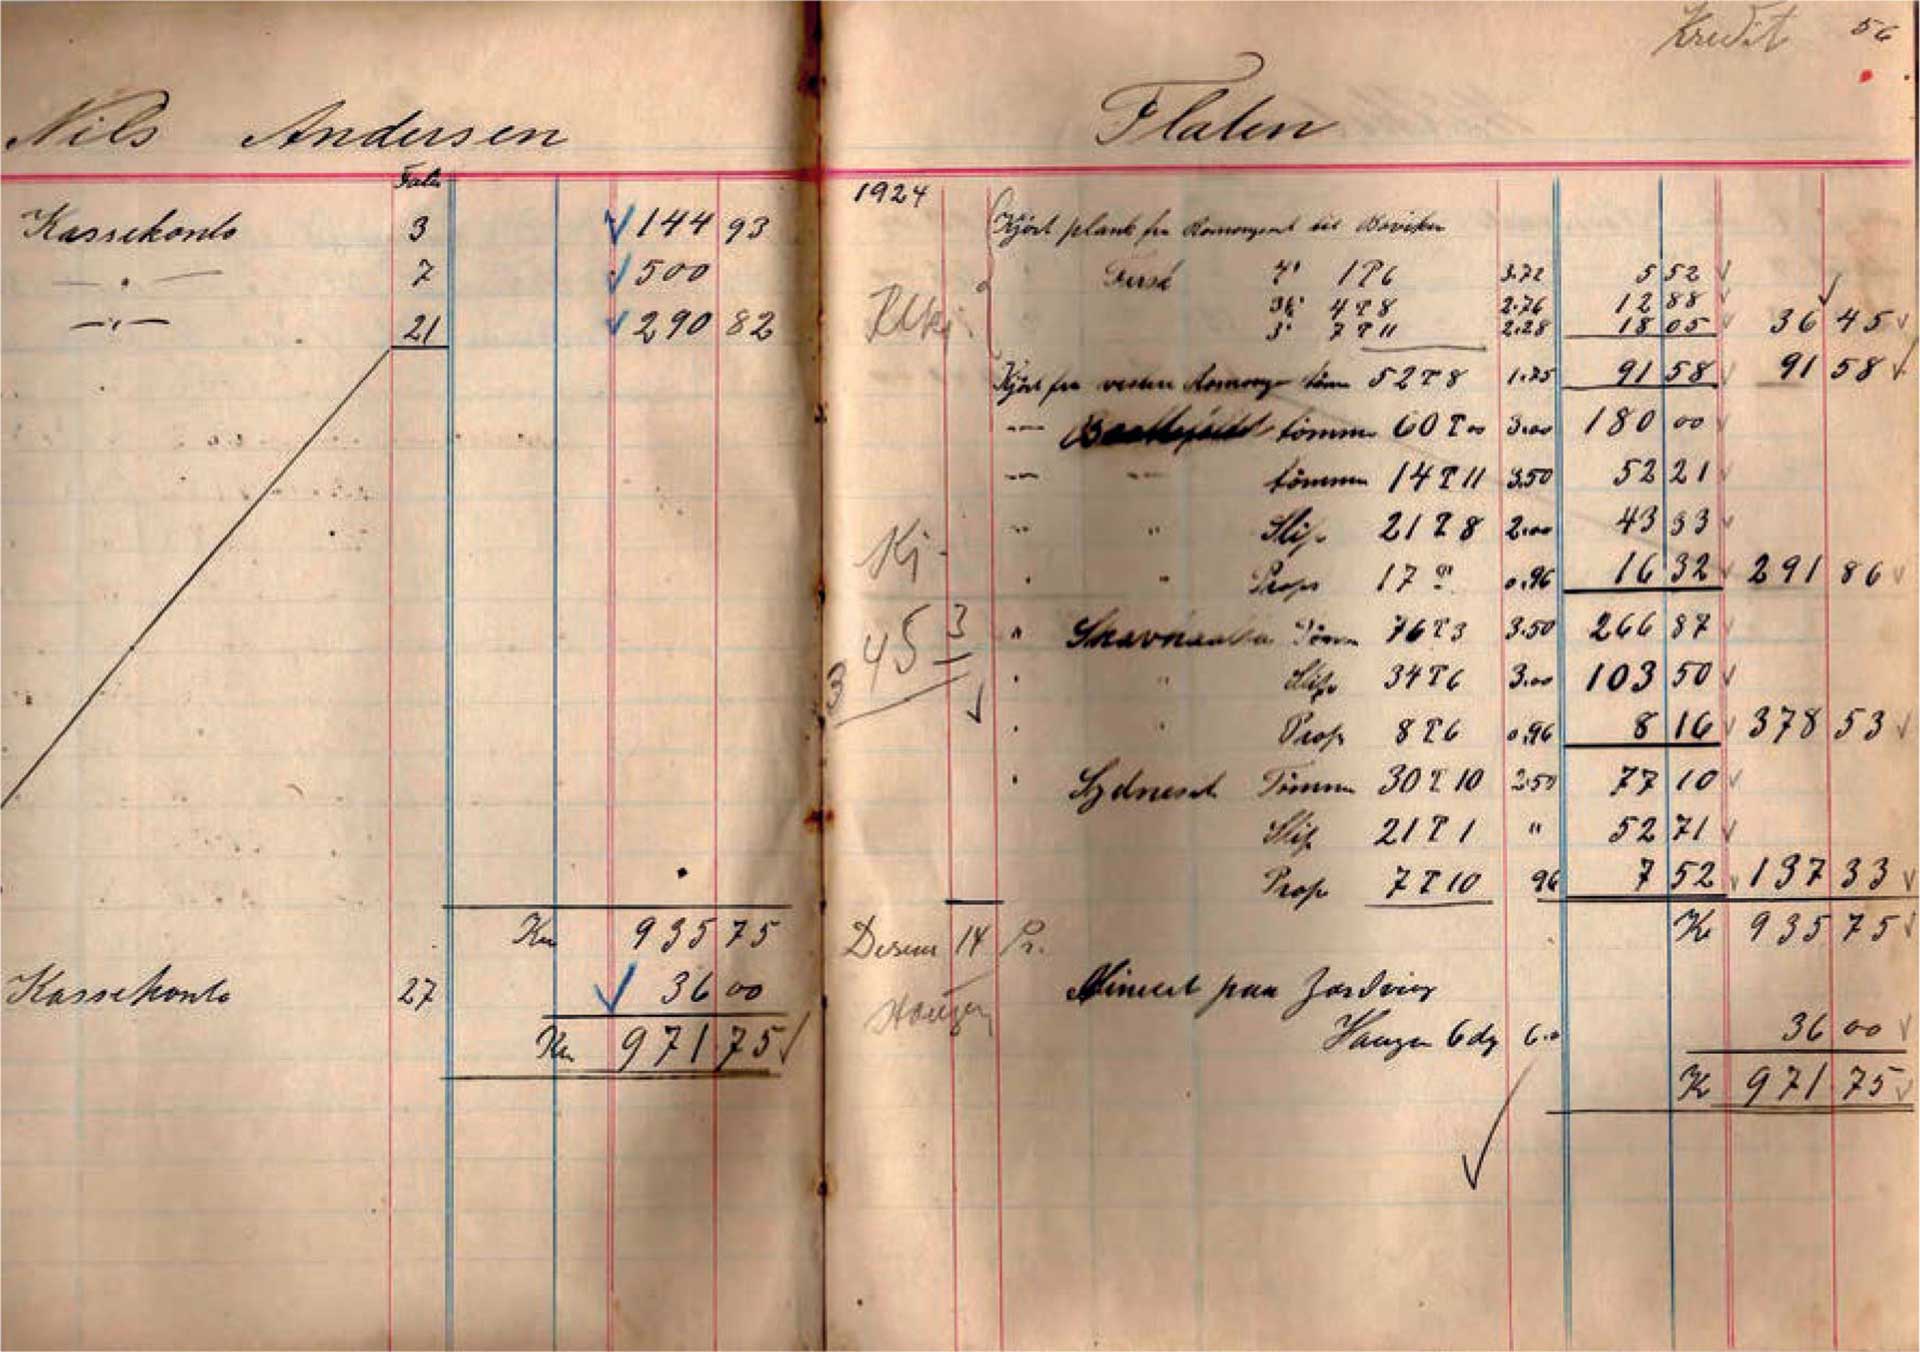 Kredit 56
Nils Andersen Flaten
Folio
Kassekonto 3 144 93
— " — 7 500
— " — 21 290 82
Kr 935 75
Kassekonto 27 36 00
Kr 971 75
1924
Kjört plank fra til
4" 1 T 6 3.72 5 52
3½" 4 T 8 2.76 12 88
3" 7 T 11 2.28 18 05 36 45
Kjört fra 52 T 8 1.75 91 58 91 58
— " — tömmer 60 T 00 3.00 180 00
— " — — " — tömmer 14 T 11 3.50 52 21
Kj.
" " Slip 21 T 8 2.00 43 33
" " Props 17 T 0.96 16 32 291 86
3 45 3
" Tömm 76 T 3 3.50 266 87
" " Slip 34 T 6 3.00 103 50
" " Prop 8 T 6 0.96 8 16 378 53
" Sydneset Tömmer 30 T 10 2.50 77 10
Slip 21 T 1 " 52 71
Prop 7 T 10 96 7 52 137 33
Kr 935 75
14 Pr.
Mineret paa
Haugen
Haugen 6 dg 6.00 36 00
Kr 971 75